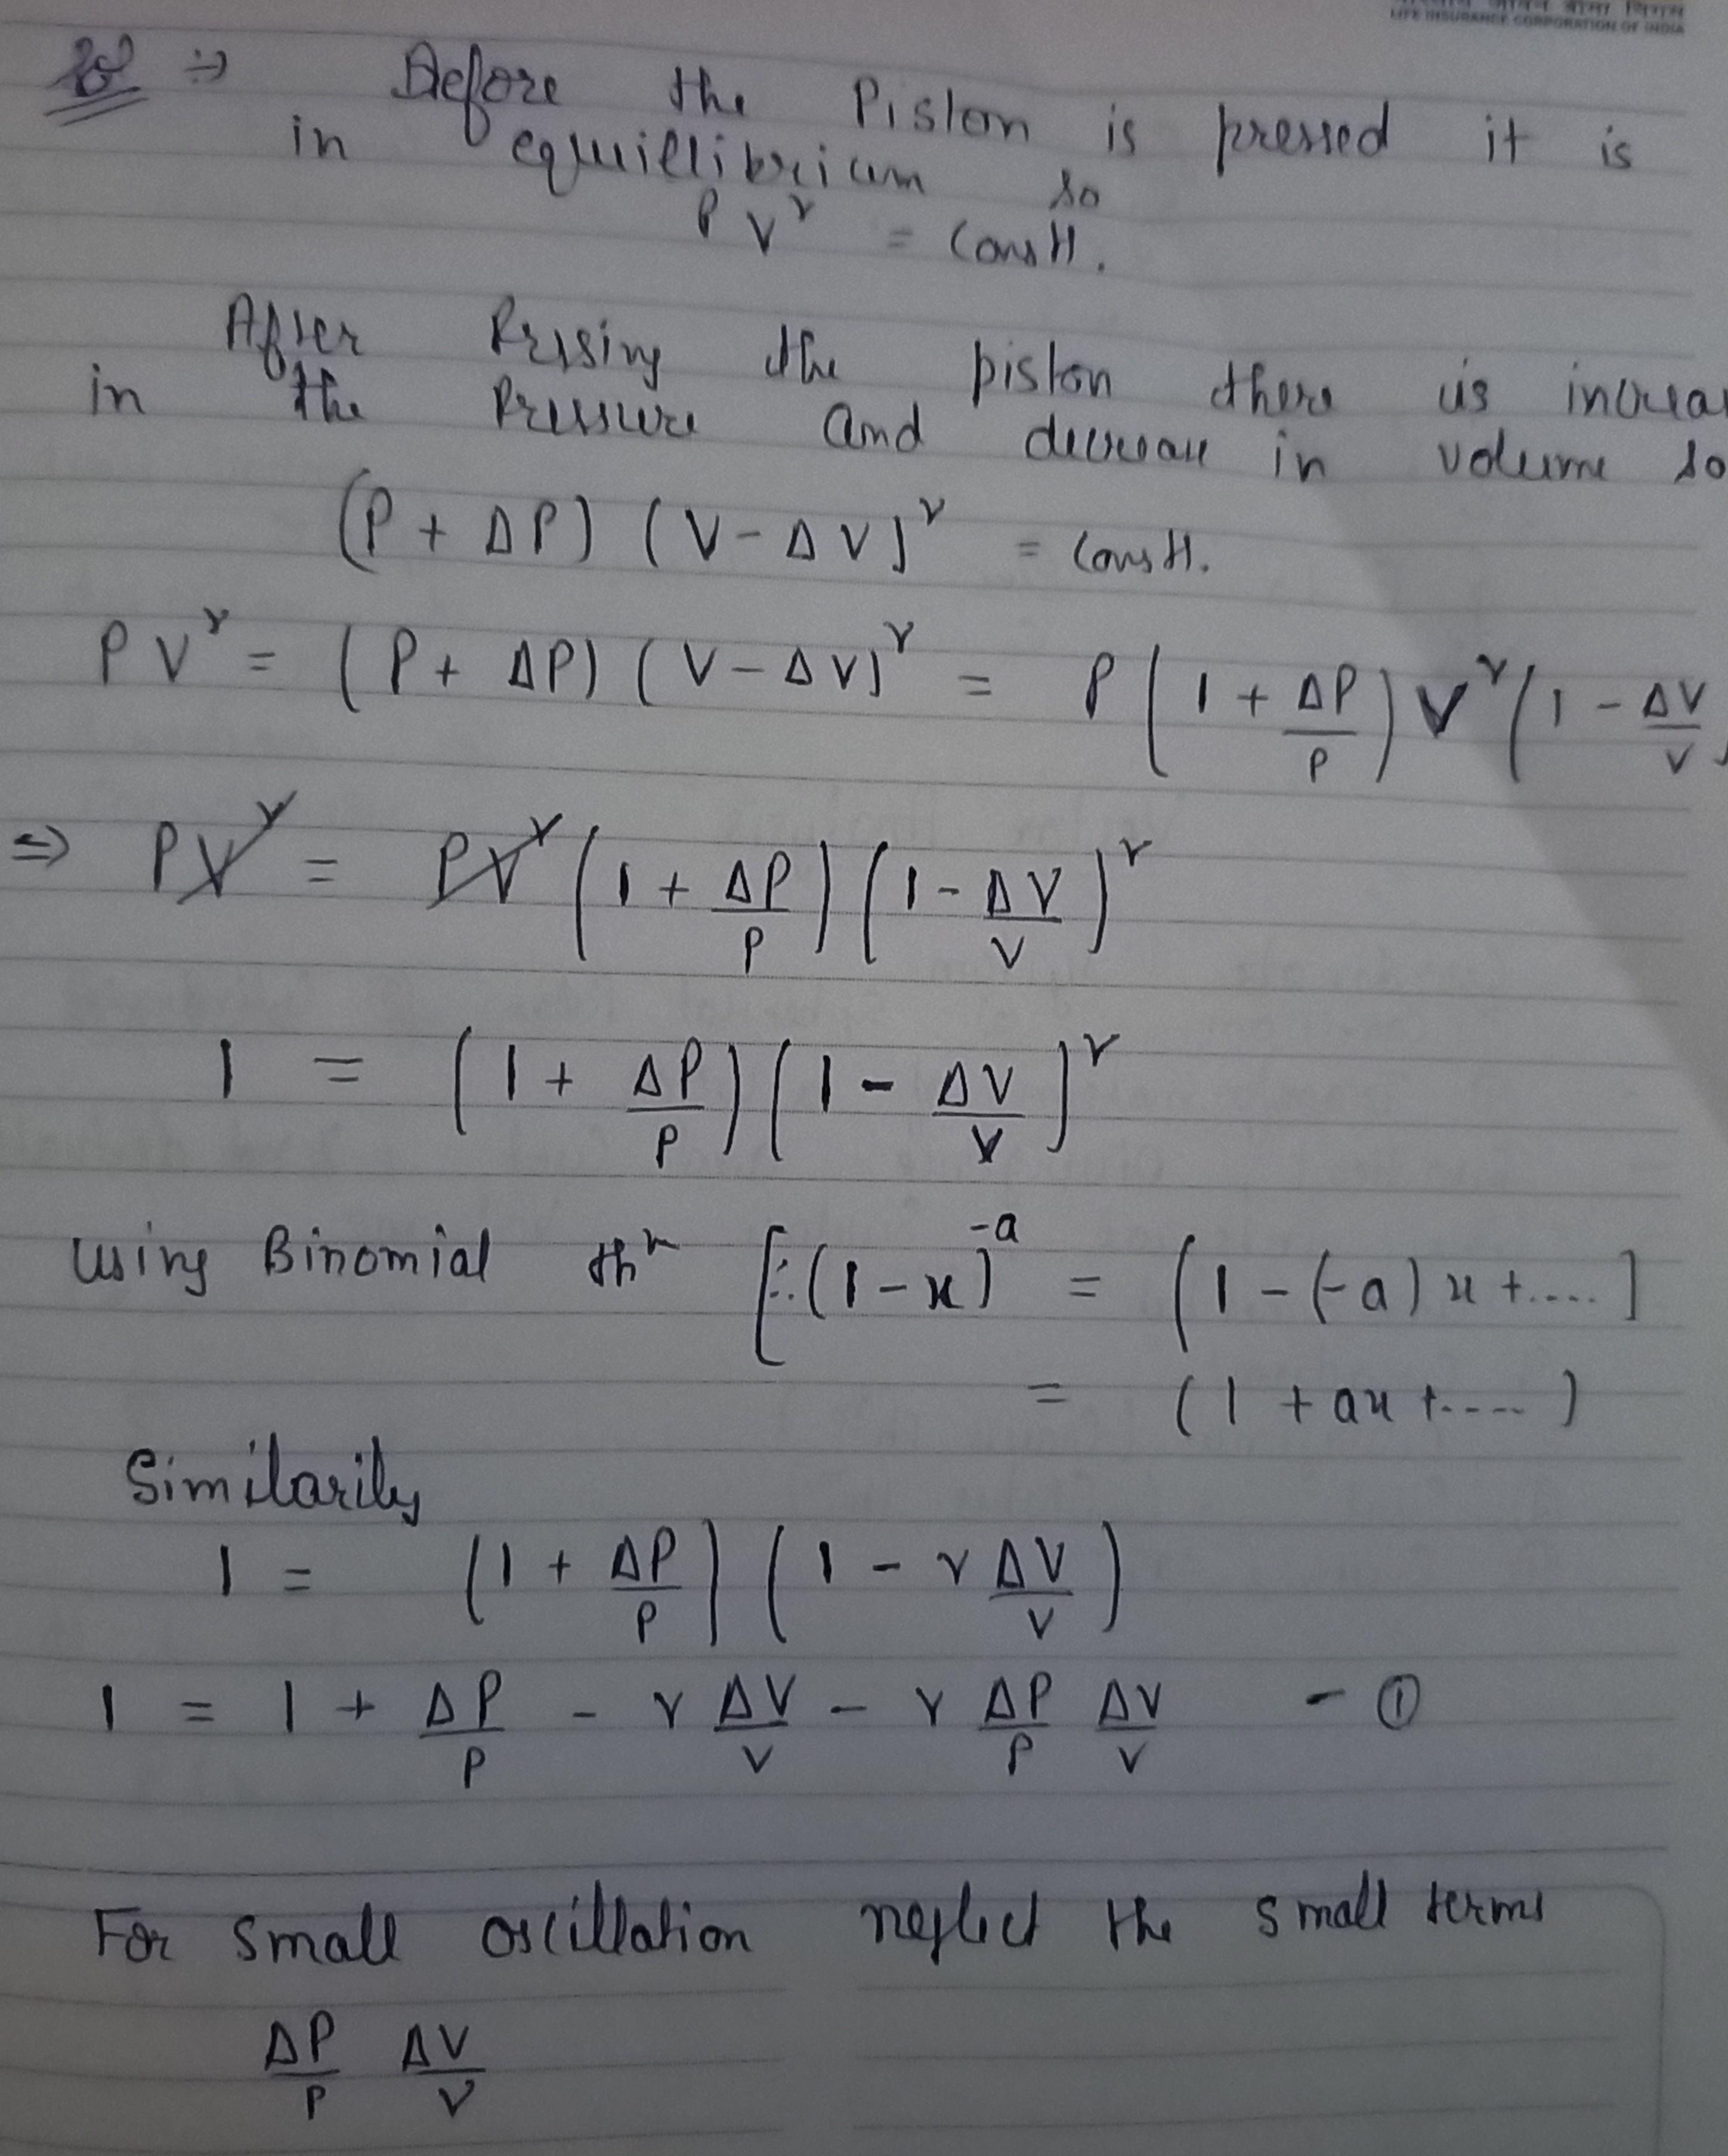 LIFE INSURANCE CORPORATION OF INDIA
Sol ⇒ Before the Piston is pressed it is
in equillibrium so
PV^γ = constt.
After Pressing the piston there is increas
in the Pressure and decrease in volume so
(P + ΔP) (V - ΔV)^γ = constt.
PV^γ = (P + ΔP) (V - ΔV)^γ = P(1 + ΔP/P) V^γ (1 - ΔV/V
⇒ PV^γ = PV^γ (1 + ΔP/P) (1 - ΔV/V)^γ
1 = (1 + ΔP/P) (1 - ΔV/V)^γ
using Binomial thm [∵ (1-x)^-a = (1 - (-a)x + ....]
= (1 + ax + .....)
Similarily
1 = (1 + ΔP/P) (1 - γ ΔV/V)
1 = 1 + ΔP/P - γ ΔV/V - γ ΔP/P ΔV/V - ①
For small oscillation neglect the small terms
ΔP/P ΔV/V